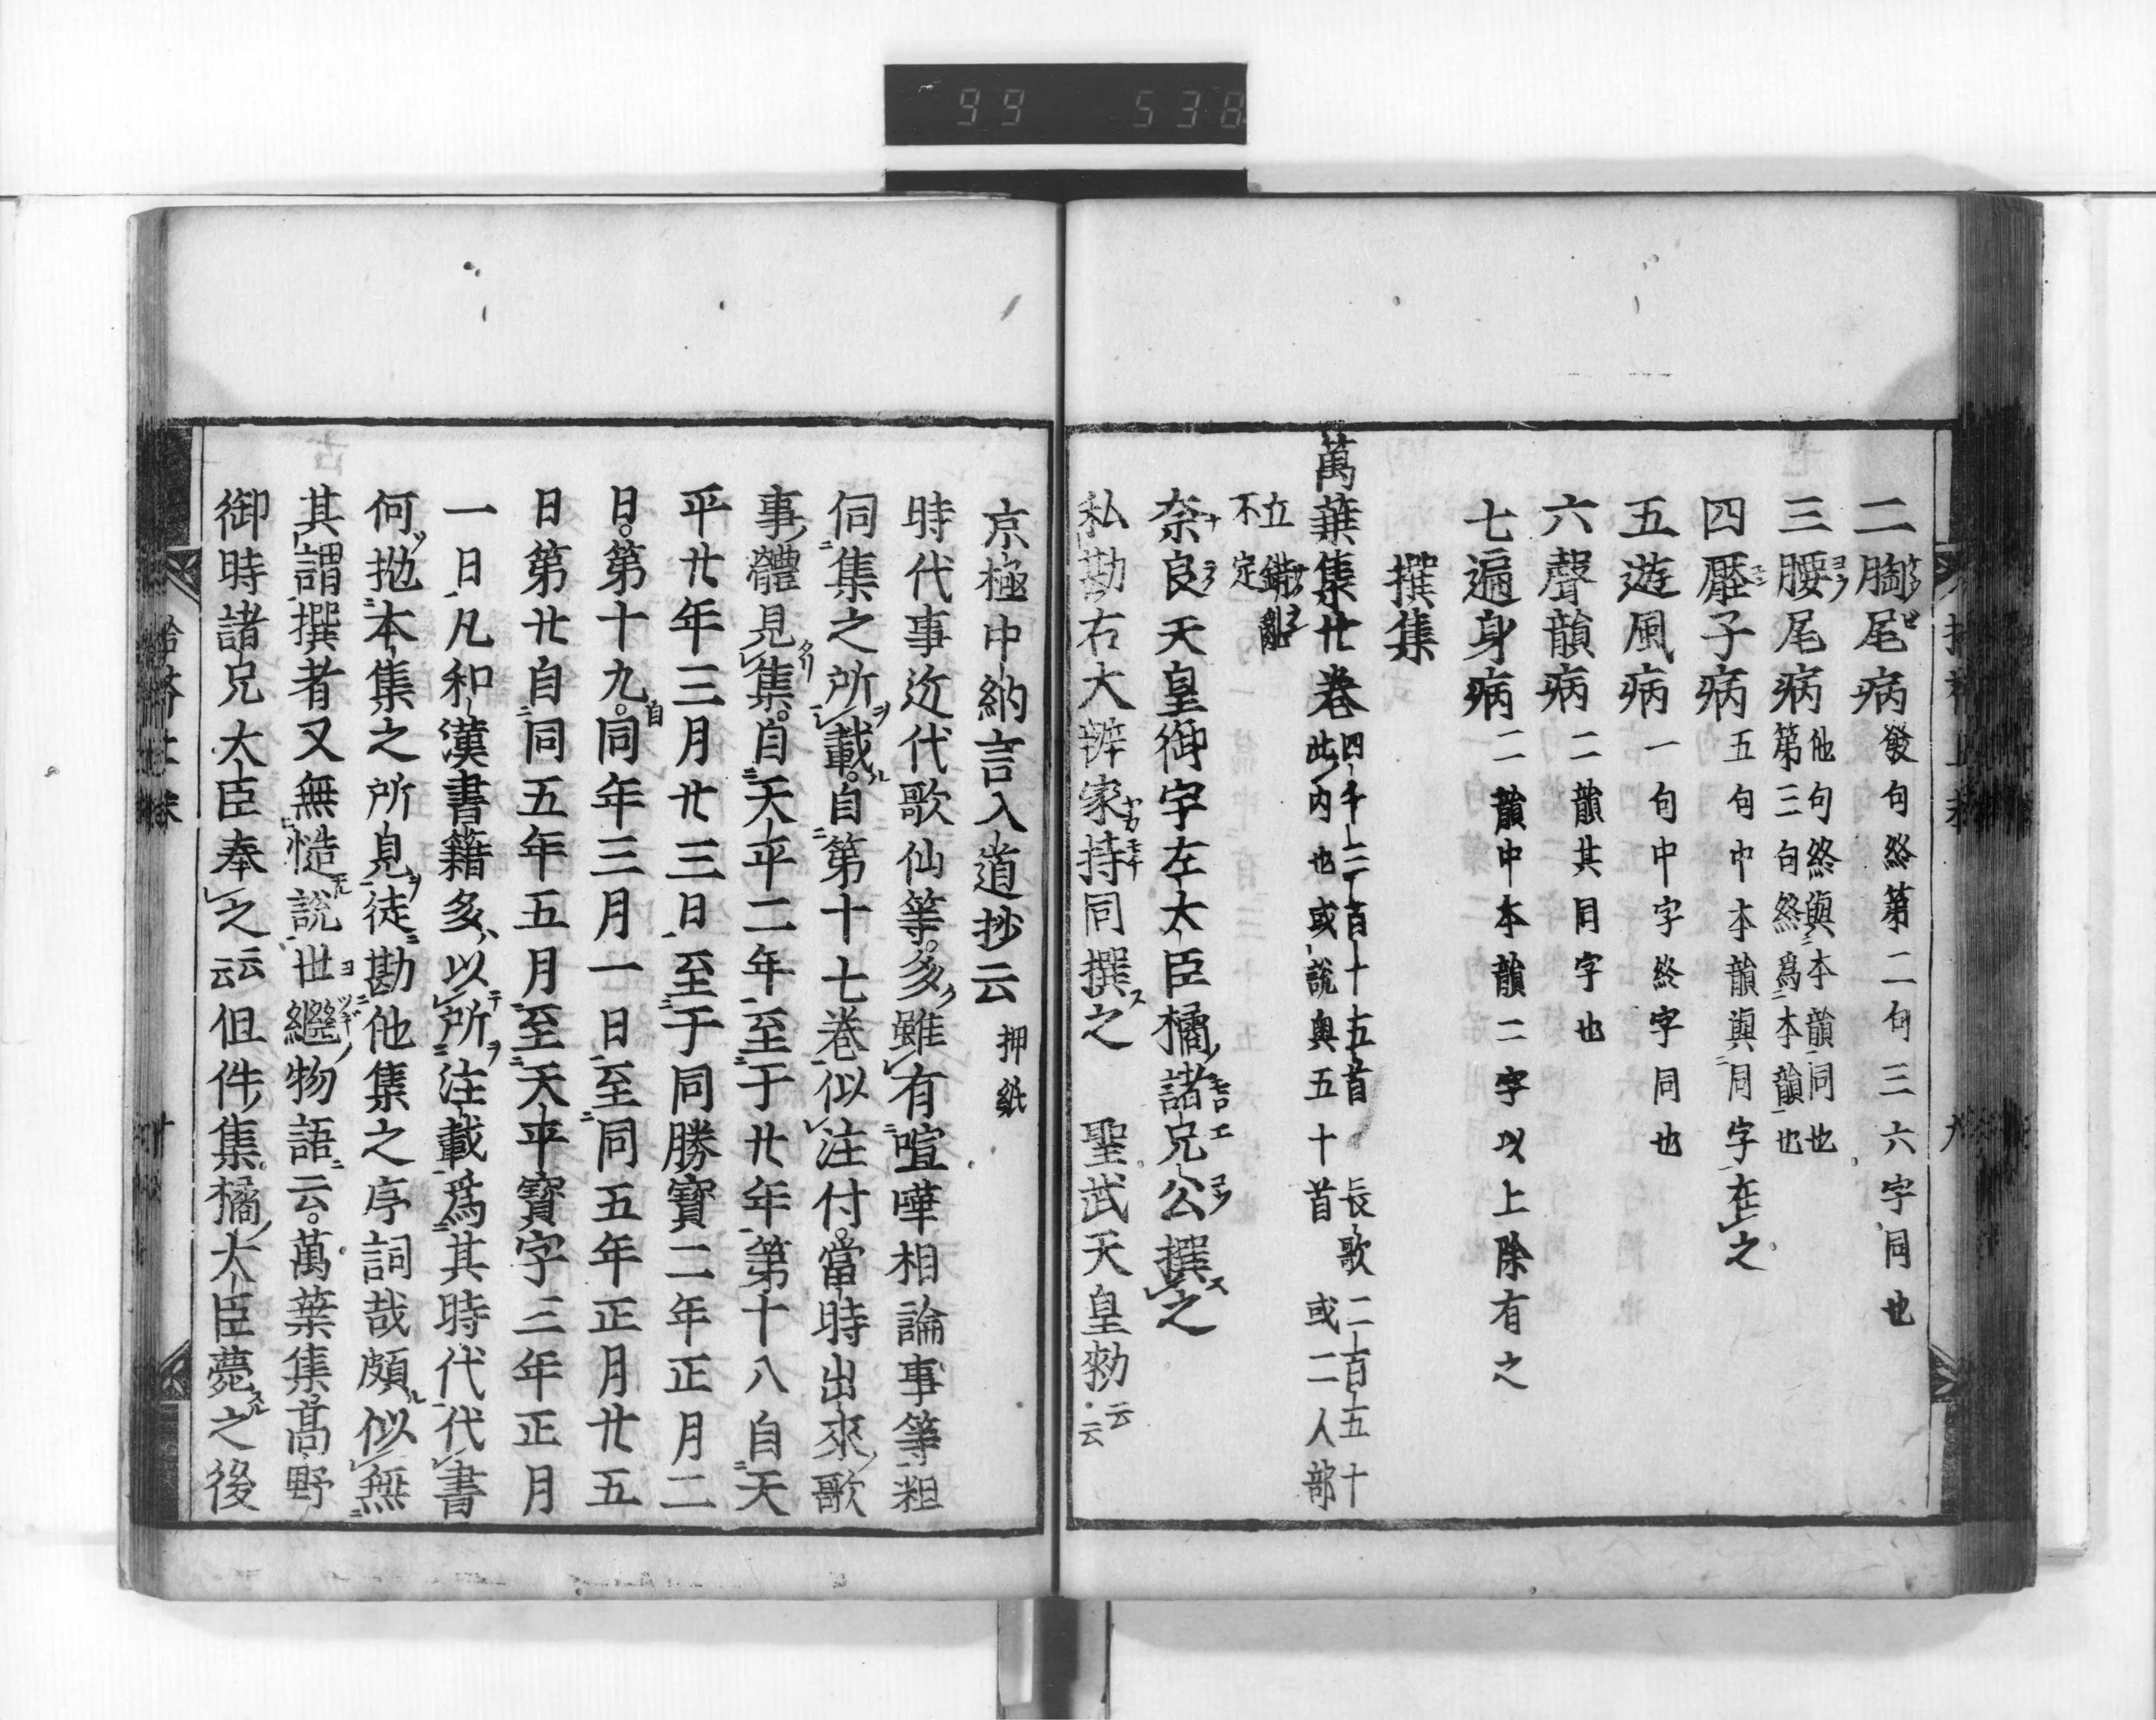 99 538
二胸尾病 發句終第二句三六字同也
三腰尾病 他句終與本韻同也
第三句終爲本韻也
四黶子病 五句中本韻與同字在之
五遊風病 一句中字終字同也
六聲韻病 二韻其同字也
七遍身病 二韻中本韻二字以上除有之
撰集
萬葉集廿卷 四千三百十五首 長歌二百五十
此内也或說奥五十首 或二人部
立錯亂
不定
奈良天皇御宇左大臣橘諸兄公撰之
私勘右大辨家持同撰之 聖武天皇勅云云
京極中納言入道抄云 押紙
時代事近代歌仙等多雖有喧嘩相論事等粗
伺集之所載自第十七卷似注付當時出來歌
事體見集自天平二年至于廿年第十八自天
平廿年三月廿三日至于同勝寶二年正月二
日第十九自同年三月一日至同五年正月廿五
日第廿自同五年五月至天平寶字三年正月
一日凡和漢書籍多以所注載爲其時代代書
何抛本集之所見徒勘他集之序詞哉頗似無
其謂撰者又無慥說世繼物語云萬葉集高野
御時諸兄大臣奉之云云但件集橘大臣薨之後